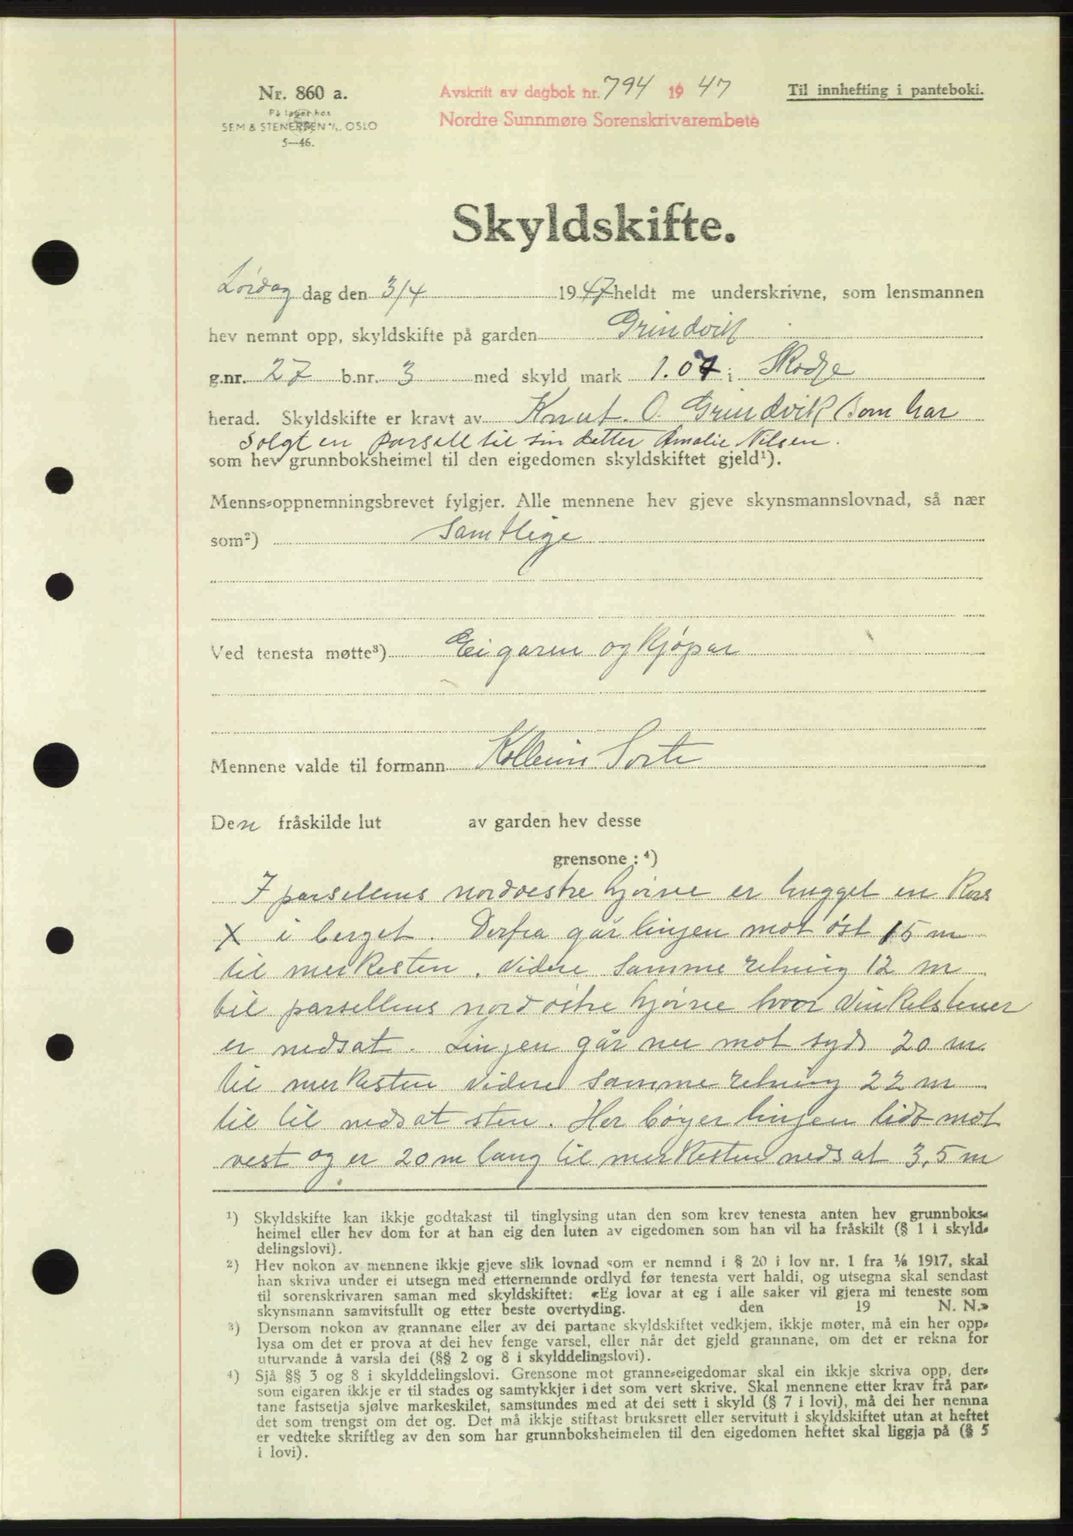 Nr. 860 a.
På lager hos
SEM & STENERSEN A/S, OSLO
5—46.
Avskrift av dagbok nr. 794 1947
Nordre Sunnmøre Sorenskrivarembete
Til innhefting i panteboki.
Skyldskifte.
Lørdag dag den 3/4 1947 heldt me underskrivne, som lensmannen
hev nemnt opp, skyldskifte på garden Grindvik
g.nr. 27 b.nr. 3 med skyld mark 1.07 i Skodje
herad. Skyldskifte er kravt av Knut O. Grindvik (som har
solgt en parsell til sin datter Amalie Nilsen.
som hev grunnboksheimel til den eigedomen skyldskiftet gjeld¹).
Menns-oppnemningsbrevet fylgjer. Alle mennene hev gjeve skynsmannslovnad, så nær
som²) Samtlige
Ved tenesta møtte³) Eigaren og kjøpar
Mennene valde til formann Sorte
Den fråskilde lut av garden hev desse
grensone: ⁴)
I parsellens nordvestre hjørne er hugget en Kors
X i berget. Derfra går linjen mot øst 15 m
til merkesten. videre samme retning 12 m
til parsellens nordøstre hjørne hvor vinkelstener
er nedsat. Linjen går nu mot syd 20 m.
til merkesten videre samme retning 22 m
til til nedsat sten. Her bøyer linjen lidt mot
vest og er 20 m lang til merkesten nedsat 3,5 m
¹) Skyldskifte kan ikkje godtakast til tinglysing utan den som krev tenesta anten hev grunnboks-
heimel eller hev dom for at han eig den luten av eigedomen som han vil ha fråskilt (§ 1 i skyld-
delingslovi).
²) Hev nokon av mennene ikkje gjeve slik lovnad som er nemnd i § 20 i lov nr. 1 fra 1/6 1917, skal
han skriva under ei utsegn med etternemnde ordlyd før tenesta vert haldi, og utsegna skal sendast
til sorenskrivaren saman med skyldskiftet: «Eg lovar at eg i alle saker vil gjera mi teneste som
skynsmann samvitsfullt og etter beste overtyding. den 19 N. N.»
³) Dersom nokon av grannane eller av dei partane skyldskiftet vedkjem, ikkje møter, må ein her opp-
lysa om det er prova at dei hev fenge varsel, eller når det gjeld grannane, om det er rekna for
uturvande å varsla dei (§§ 2 og 8 i skylddelingslovi).
⁴) Sjå §§ 3 og 8 i skylddelingslovi. Grensone mot granne-eigedomar skal ein ikkje skriva opp, der-
som eigaren ikkje er til stades og samtykkjer i det som vert skrive. Skal mennene etter krav frå par-
tane fastsetja sjølve markeskilet, samstundes med at dei sett i skyld (§ 7 i lovi), må dei her nemna
det som trengst om det og. Det må ikkje stiftast bruksrett eller servitutt i skyldskiftet utan at heftet
er vedteke skriftleg av den som har grunnboksheimelen til den eigedomen heftet skal liggja på (§ 5
i lovi).